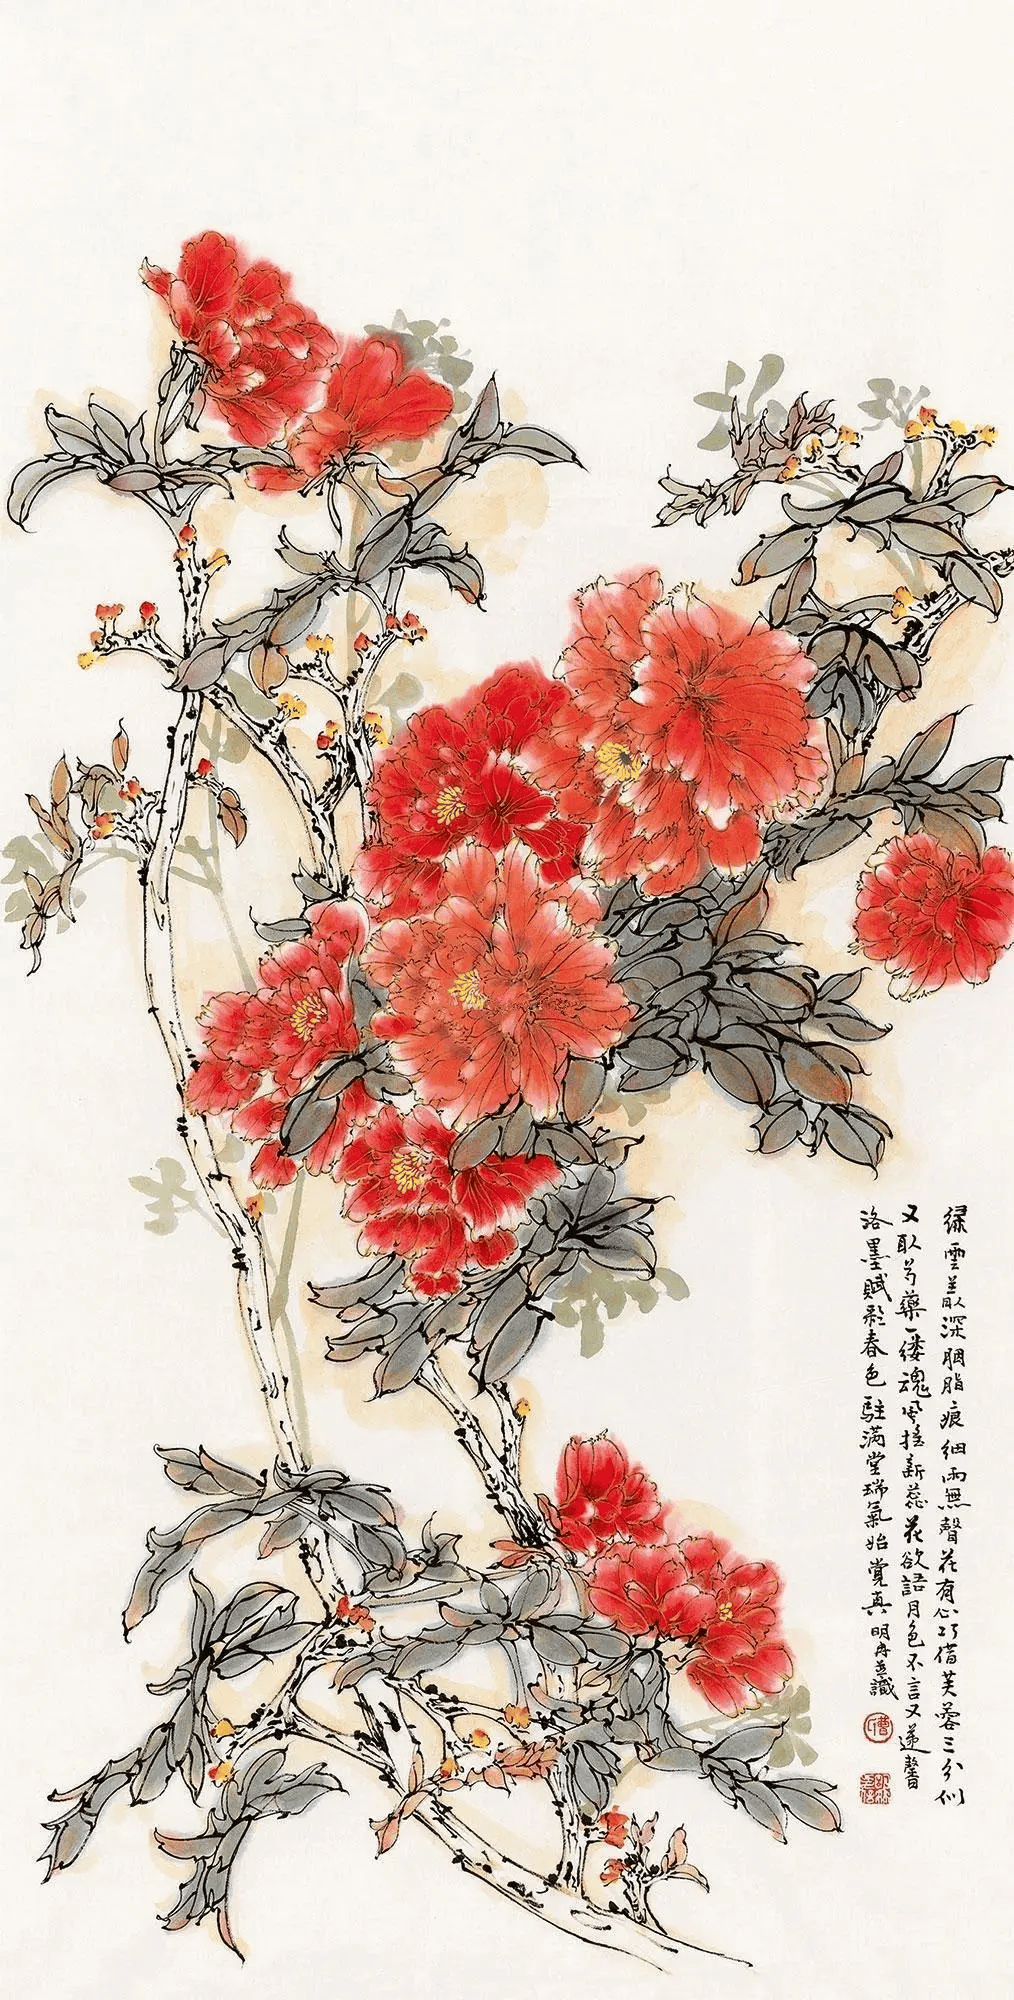 绿雲羞臥深胭脂痕細雨無聲花有心巧借芙蓉三分似
又取芍藥一缕魂風摇新蕊花欲語月色不言又遞馨
洛墨賦彩春色駐满堂瑞氣始覺真 明冉并識